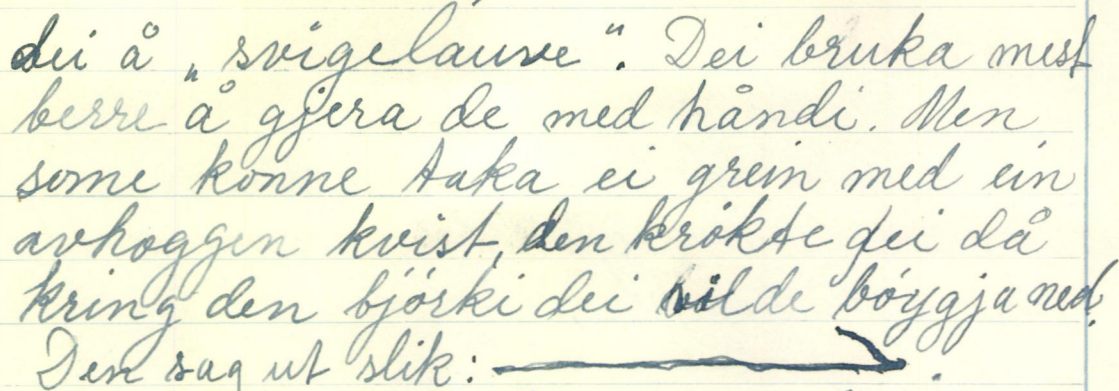 dei å „svigelauve“. Dei bruka mest
berre å gjera de med håndi. Men
some konne taka ei grein med ein
avhoggen kvist, den krókte dei då
kring den bjórki dei vilde bóygja ned.
Den sag ut slik: